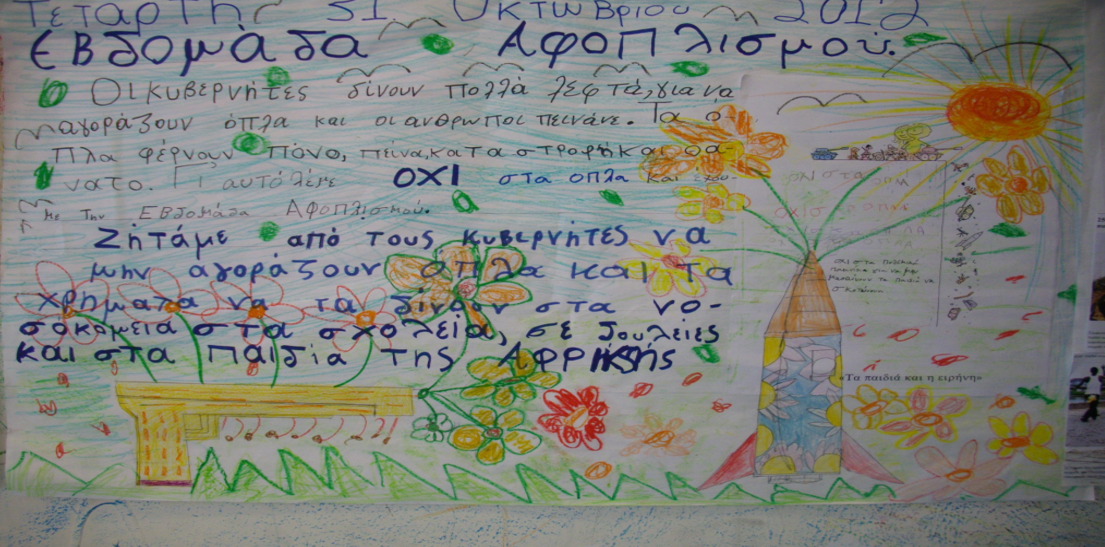 Τετάρτη 31 Οκτωβρίου 2012
Εβδομάδα Αφοπλισμού.
Οι κυβερνήτες δίνουν πολλά λεφτά, για να
αγοράζουν όπλα και οι ανθρωποι πεινάνε. Τα ό-
πλα φέρνουν πόνο, πείνα, καταστροφή και θά-
νατο. Γι αυτό λέμε ΟΧΙ στα οπλα και
Με την Εβδομάδα Αφοπλισμού.
Ζητάμε από τους κυβερνήτες να
μην αγοράζουν όπλα και τα
χρήματα να τα δίνουν στα νο-
σοκομεία στα σχολεία, σε δουλειές
και στα παιδιά της Αφρικής
«Τα παιδιά και η ειρήνη»